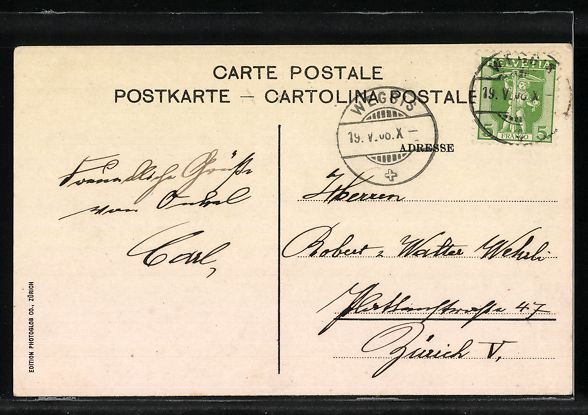 CARTE POSTALE
POSTKARTE — CARTOLINA POSTALE
WEGGIS
19. V. 08. X —
HELVETIA
19. V. 08. X
5 5
FRANCO
ADRESSE
Freundliche Grüße
von Onkel
Carl,
Herren
Robert & Walter Wehrli
Plattenstrasse 47
Zürich V,
EDITION PHOTOGLOB CO., ZÜRICH